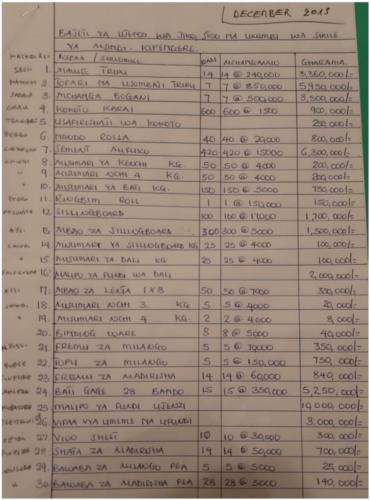 DECEMBER 2013
BAJETI YA UJENZI WA JIKO, STOO NA UKUMBI WA SHULE
YA MSINGI - KIPENGERE.
KIFAA / SHUGHULI IDADI MCHANGANUO GHARAMA.
1. MAWE TRIPU 14 14 @ 240,000 3,360,000/=
2. TOFARI NA USOMBAJI TRIPU 7 7 @ 850,000 5,950,000/=
3. MCHANGA BOGANI 7 7 @ 500,000 3,500,000/=
4. KOKOTO KARAI 600 600 @ 1500 900,000/=
5. USAFIRISHAJI WA KOKOTO 200,000/=
6. NONDO ROLLA 40 40 @ 20,000 800,000/=
7. SEMENT MIFUKO 420 420 @ 15000 6,300,000/=
8. MISUMARI YA KENCHI KG. 50 50 @ 4000 200,000/=
9. MISUMARI NCHI 4 KG. 50 50 @ 4000 200,000/=
10. MISUMARI YA BATI KG. 150 150 @ 5000 750,000/=
11. RUGBSIM ROLL 1 1 @ 150,000 150,000/=
12. SILLINGBOARD 100 100 @ 17000 1,700,000/=
13. MBAO ZA SILLINGBOARD 300 300 @ 5000 1,500,000/=
14. MISUMARI YA SILLINGBOARD KG 25 25 @ 4000 100,000/=
15. MISUMARI YA DALI KG 25 25 @ 4000 100,000/=
16. MALIPO YA FUNDI WA DALI 2,000,000/=
17. MBAO ZA LENTA 1X8 50 50 @ 7000 350,000/=
18. MISUMARI NCHI 3. KG 5 5 @ 4000 20,000/=
19. MISUMARI NCHI 4 KG. 2 2 @ 4000 8,000/=
20. BINDING WARE 8 8 @ 5000 40,000/=
21. FREMU ZA MILANGO 5 5 @ 70000 350,000/=
22. TOPU ZA MILANGO 5 5 @ 150,000 750,000/=
23. FREMU ZA MADIRISHA 14 14 @ 60,000 840,000/=
24. BATI GAGE 28 BANDO 15 15 @ 350,000 5,250,000/=
25. MALIPO YA FUNDI UJENZI 10,000,000/=
26. VIFAA VYA UMEME NA UFUNDI 3,000,000/=
27. VIOO SHEET 10 10 @ 30,000 300,000/=
28. SHATA ZA MADIRISHA 14 14 @ 50,000 700,000/=
29. BAWABA ZA MILANGO PEA 5 5 @ 5000 25,000/=
30. BAWABA ZA MADIRISHA PEA 28 28 @ 5000 140,000/=